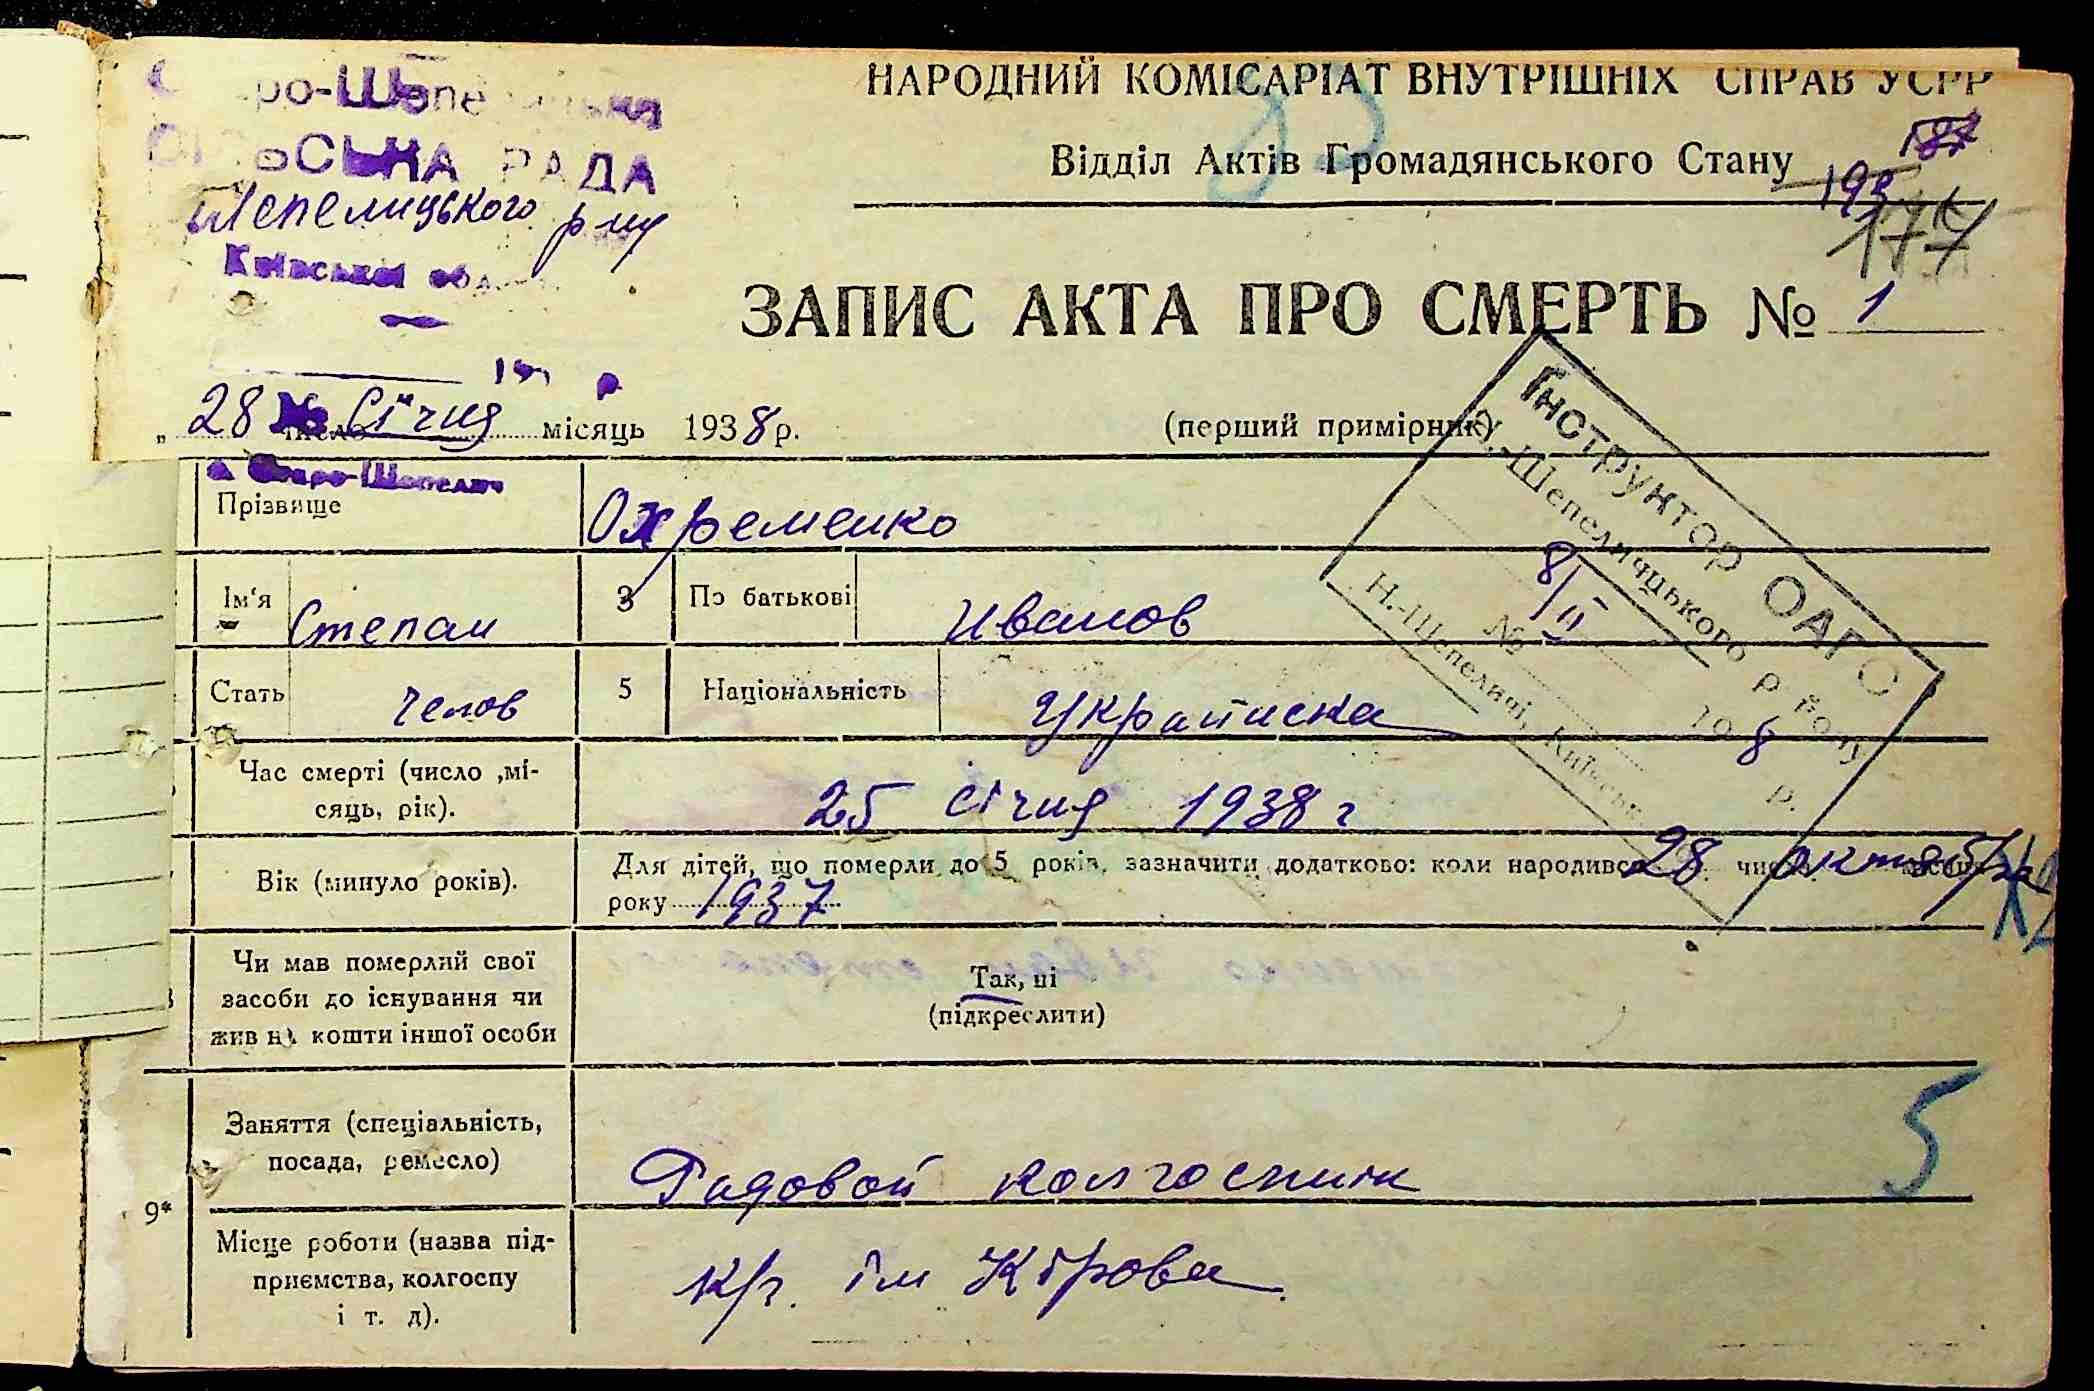 СІЛЬСЬКА РАДА
Шепелицького р-ну
Київської обл.
НАРОДНИЙ КОМІСАРІАТ ВНУТРІШНІХ СПРАВ УСРР
Відділ Актів Громадянського Стану
187
193
177
ЗАПИС АКТА ПРО СМЕРТЬ № 1
„ 28 число Січня місяць 1938 р.
(перший примірник)
Інструктор ОАГС
Н.-Шепелицького району
№ 8/II
8 р.
Н.-Шепеличі, Київськ.
с. Старо-Шепелич
Прізвище Охременко
Ім'я Степан 3 По батькові Иванов
Стать челов 5 Національність Украинска
Час смерті (число ,мі-
сяць, рік). 25 січня 1938 г
Вік (минуло років). Для дітей, що померли до 5 років, зазначити додатково: коли народився 28 число октября місяця
року 1937
Чи мав померлий свої
засоби до існування чи
жив на кошти іншої особи
Так, ні
(підкреслити)
9*
Заняття (спеціальність,
посада, ремесло) Радовой колгоспник
5
Місце роботи (назва під-
приємства, колгоспу
і т. д). кг. ім Кірова.